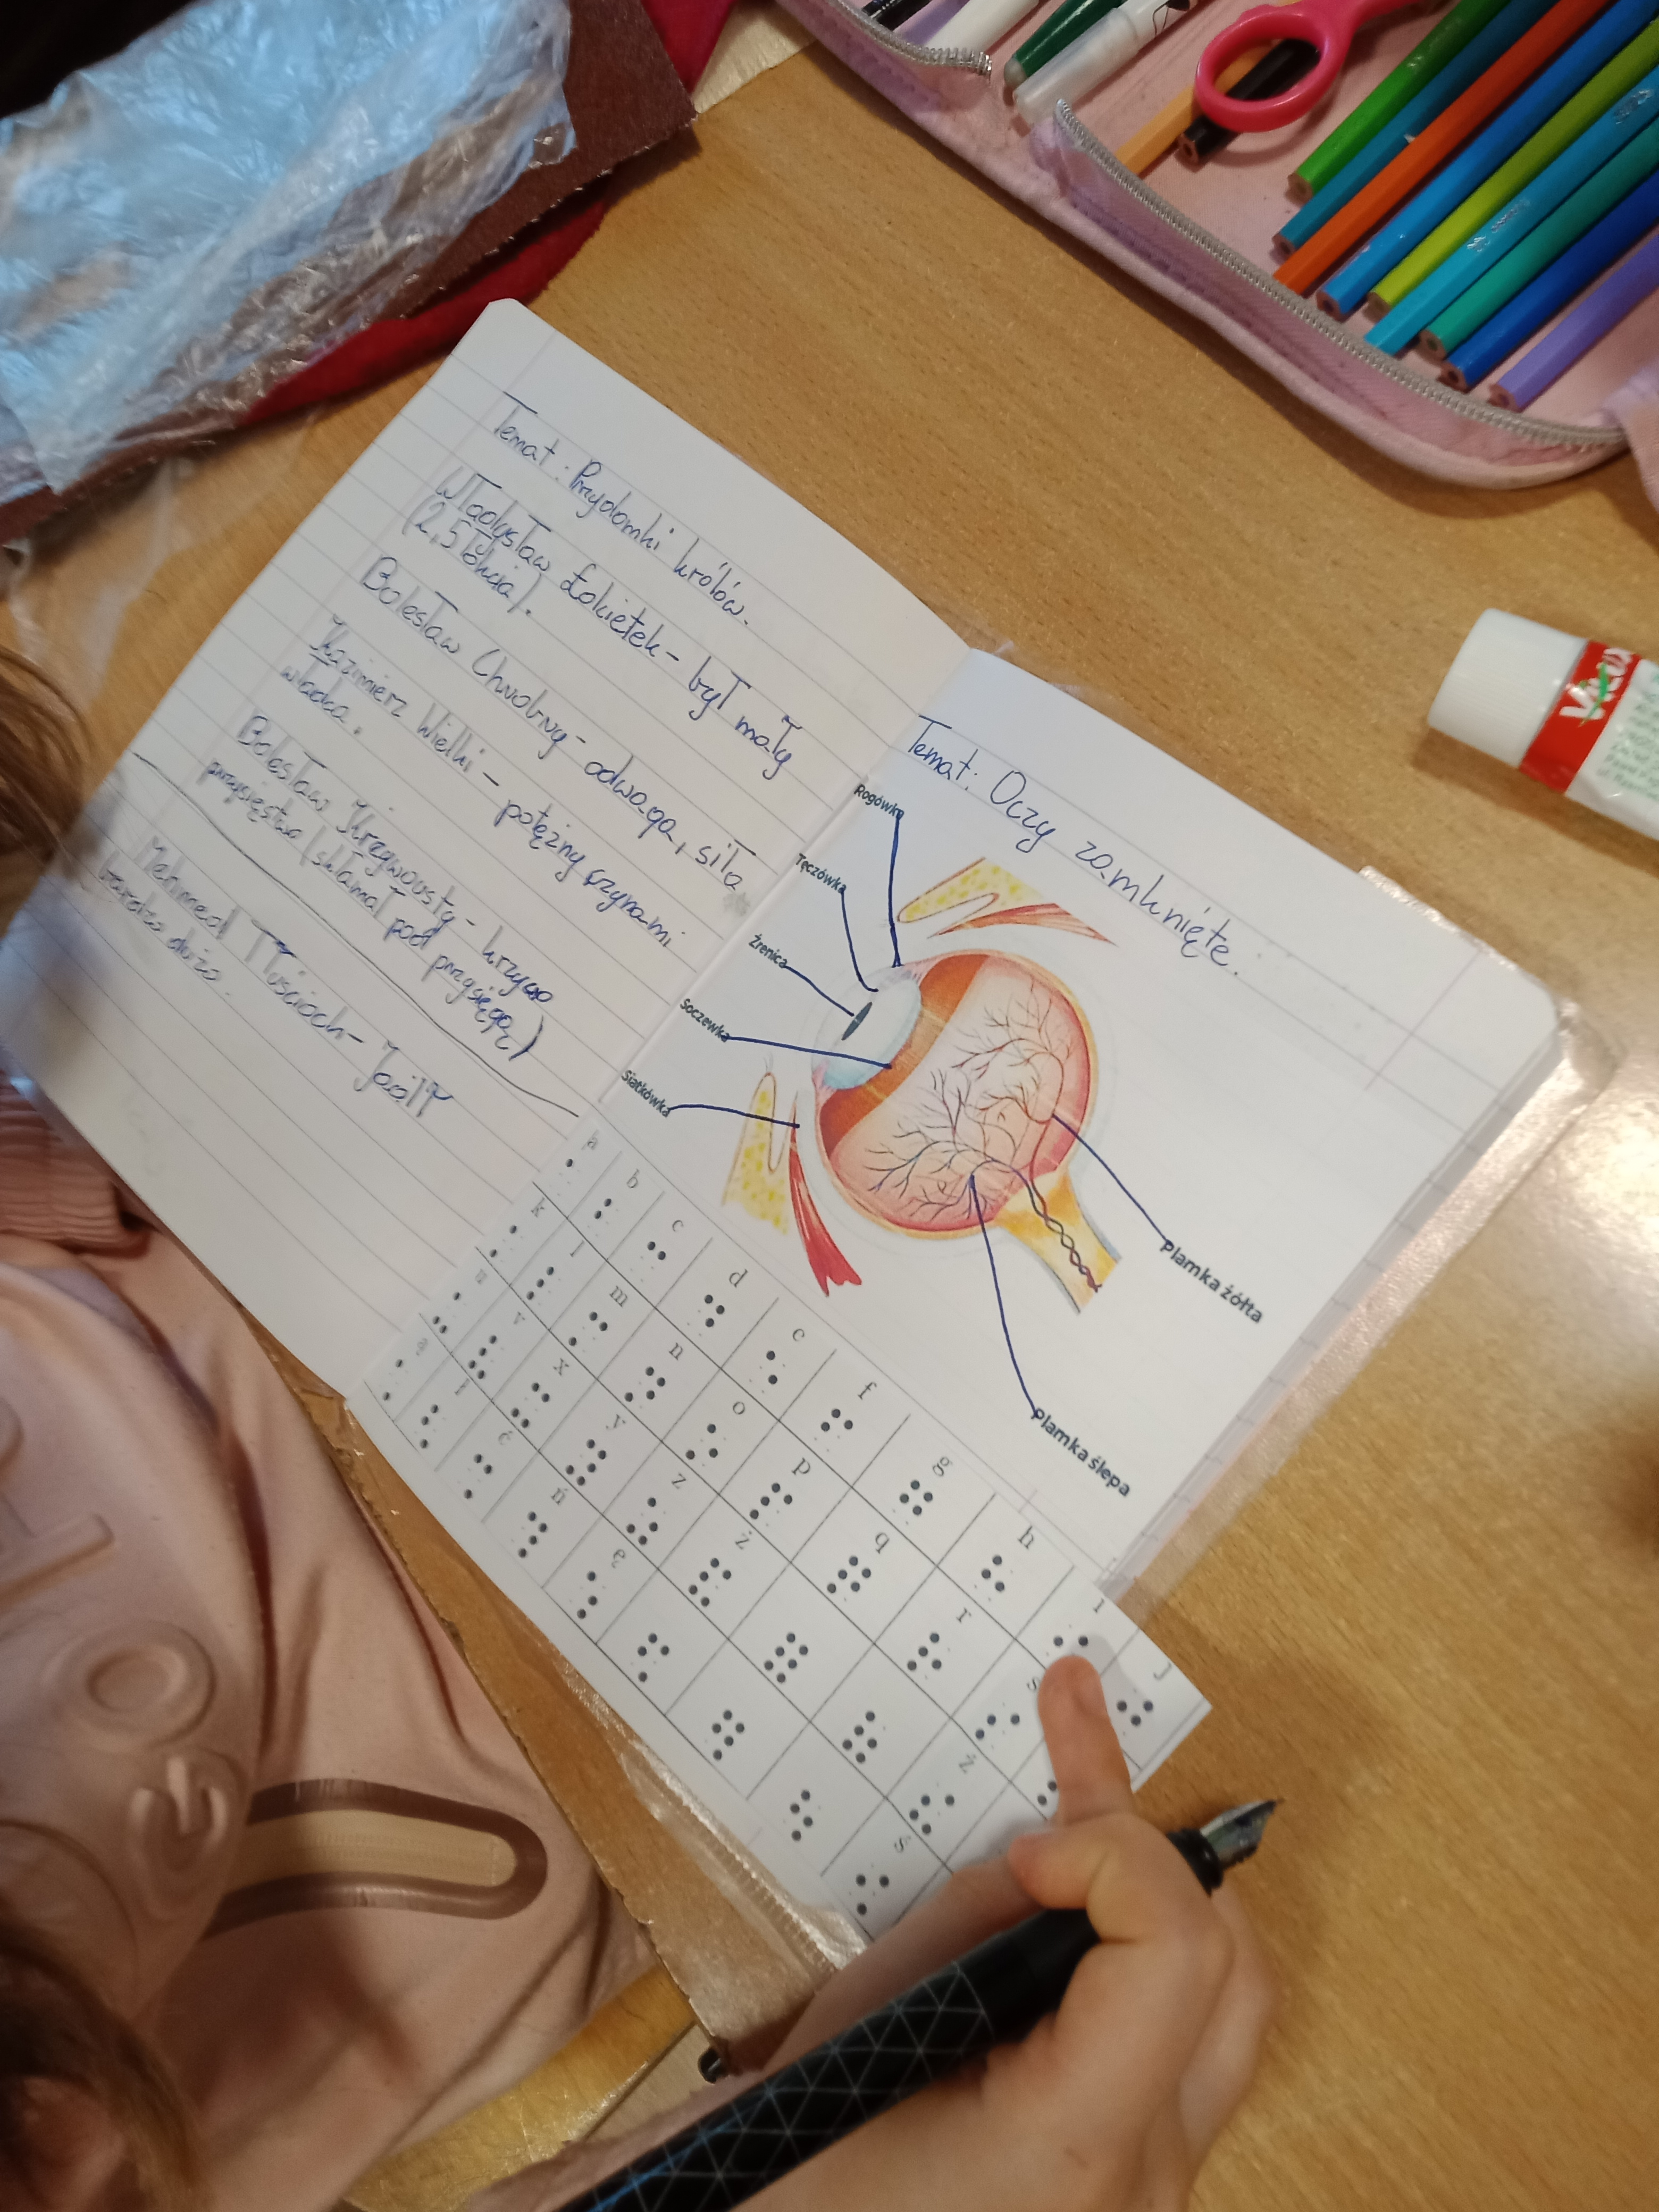 Temat: Przydomki królów.
Władysław Łokietek - był mały
(2,5 łokcia).
Bolesław Chrobry - odwaga, siła
Kazimierz Wielki - potężny czynami
władca.
Bolesław Krzywousty - krzywo
przysięstwo (skłamał pod przysięgą)
Mehmed Tłuścioch - Jadł
bardzo dużo.
Temat: Oczy zamknięte.
Rogówka
Tęczówka
Źrenica
Soczewka
Siatkówka
Plamka żółta
Plamka ślepa
a b c d e f g h i j
k l m n o p q r s
u v x y z ż ź
ą ł ć ń ę ś